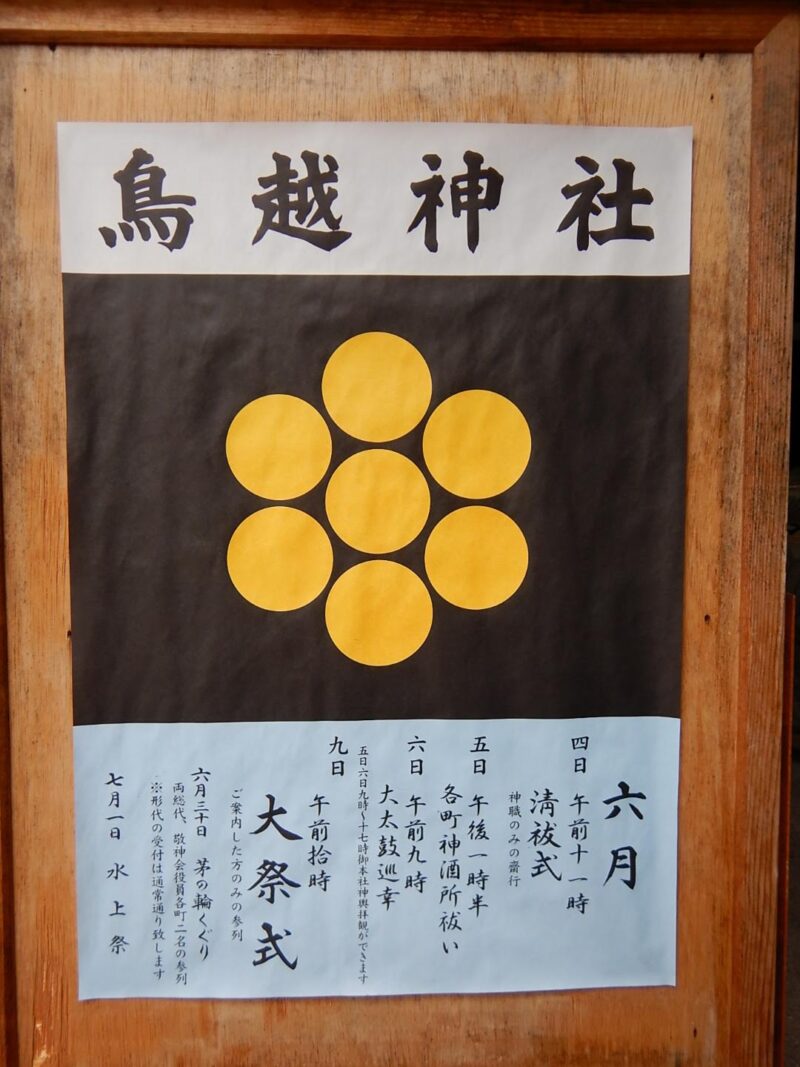 鳥越神社
六月
四日 午前十一時
清祓式
神職のみの齋行
五日 午後一時半
各町神酒所祓い
六日 午前九時
大太鼓巡幸
五日六日九時~十七時御本社神輿拝観ができます
九日 午前拾時
大祭式
ご案内した方のみの参列
六月三十日 茅の輪くぐり
両総代、敬神会役員各町二名の参列
※形代の受付は通常通り致します
七月一日 水上祭